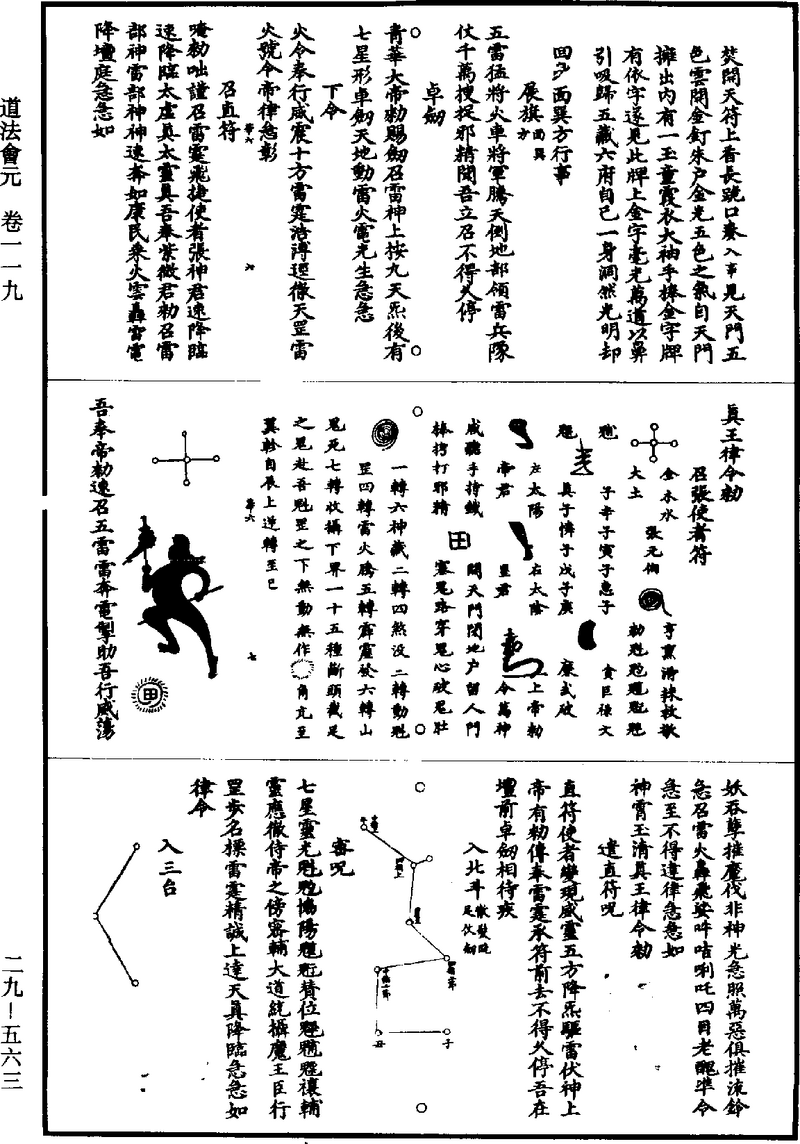 道法會元　卷一一九
二九—五六三
焚開天符上香長跪口奏入事見天門五
色雲開金釘朱戶金光五色之氣自天門
擁出內有一玉童霞衣大袖手捧金字牌
有依字遂見此牌上金字毫光萬道以鼻
引吸歸五藏六府自己一身洞然光明却
回步面巽方行事
展旗面巽方
五雷猛將火車將軍騰天倒地部領雷兵隊
仗千萬搜捉邪精聞吾立召不得久停
卓劍
青華大帝勑賜劍召雷神上按九天炁後有
七星形卓劍天地動雷火電光生急急
下令
火令奉行威震十方雷霆浩溥逕徹天罡雷
火號令帝律急彰
召直符
唵勑咄謹召雷霆飛捷使者張神君速降臨
速降臨太虛真太靈真吾奉紫微君勑召雷
部神雷部神神速奔如康民乘火雲轟雷電
降壇庭急急如
真王律令勑
召張使者符
金木水
火土
張元伯
亨熏滯
子辛子寅子惠子
貪巨祿文
真子悌子戊子庚
廉武破
左太陽
右太陰
上帝勑
帝君
星君
令萬神
威聽手持鐵
開天門閉地戶留人門
棒拷打邪精
塞鬼路穿鬼心破鬼肚
一轉六神藏二轉四煞沒三轉動魁
罡四轉雷火騰五轉霹靂發六轉山
鬼死七轉收攝下界一十五種斷頭截足
之鬼赴吾魁罡之下無動無作角亢至
翼軫自辰上逆轉至巳
吾奉帝勑速召五雷雷奔電掣助吾行威蕩
妖吞孽摧魔伐非神光急照萬惡俱摧流鈴
急召雷火轟飛娑吽咭唎吒四目老翁準令
急至不得違律急急如
神霄玉清真王律令勑
遣直符呪
直符使者變現威靈五方降炁驅雷伏神上
帝有勑傳奉雷霆承符前去不得久停吾在
壇前卓劍相待疾
入北斗散髮跣足仗劍
子
丑
密呪
七星靈光
靈應徹侍帝之傍密輔大道統攝魔王臣行
罡步名標雷霆精誠上達天真降臨急急如
律令
入三台